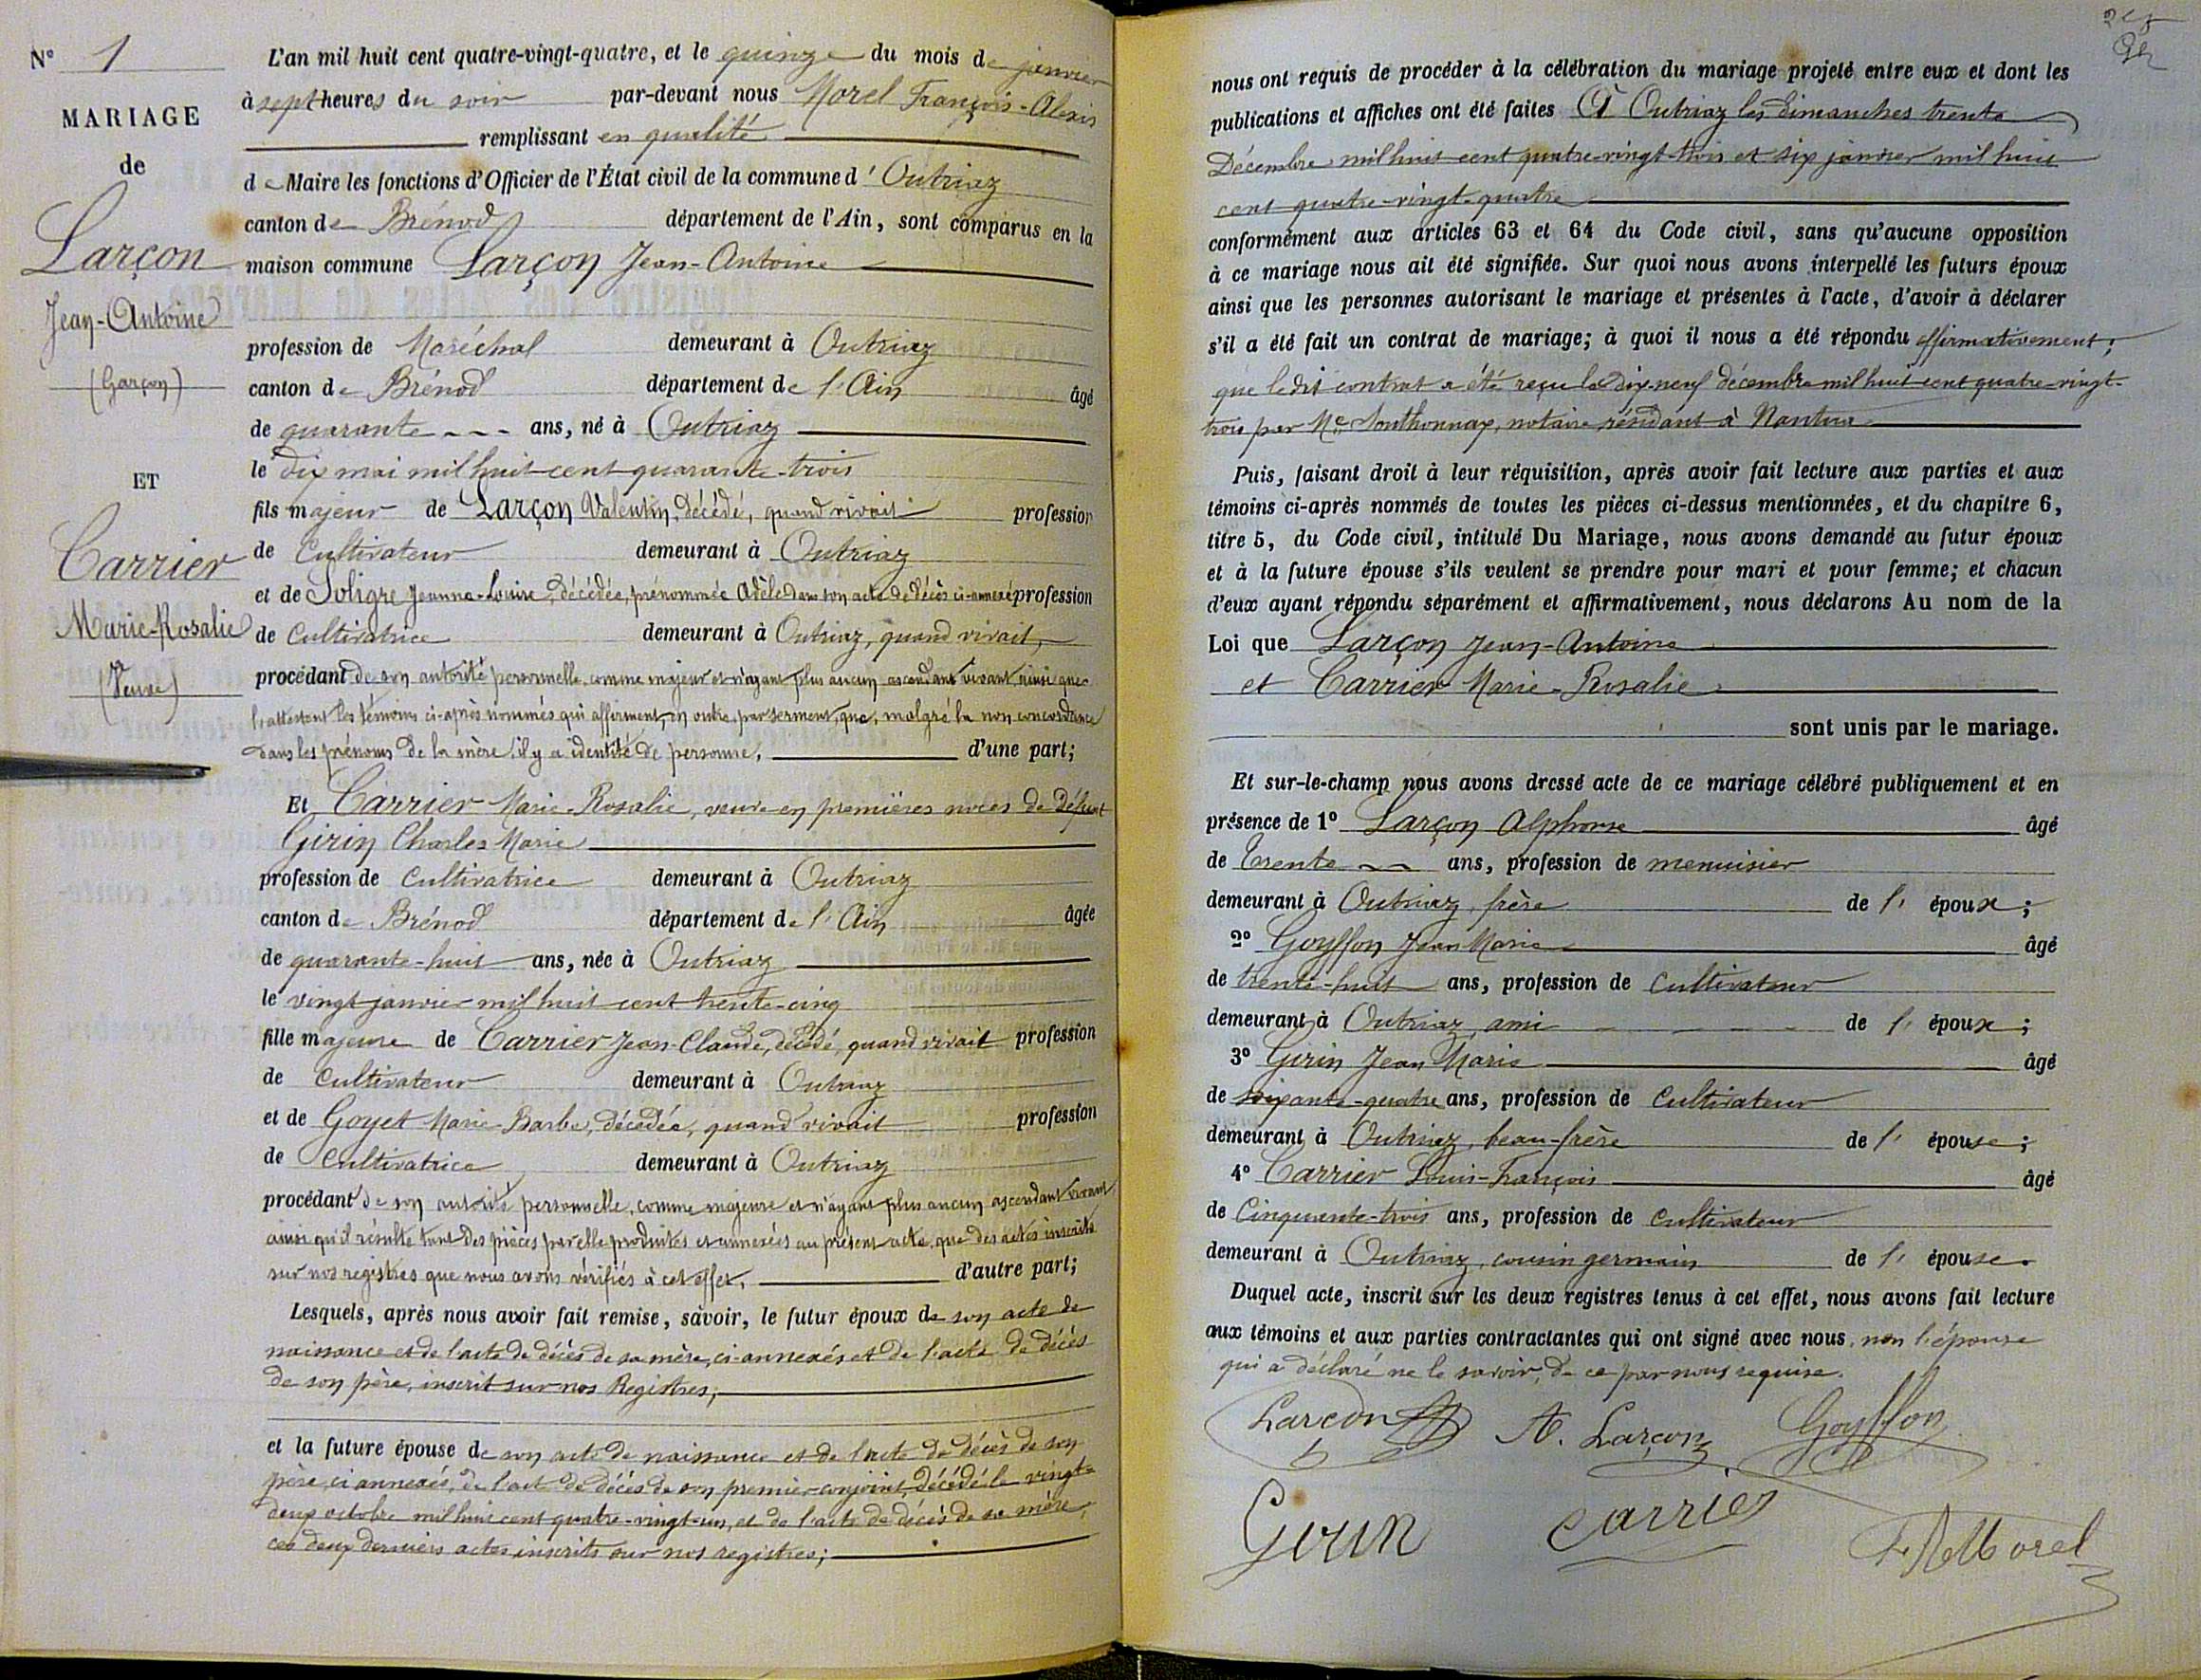 N° 1
MARIAGE
de
Larçon
Jean-Antoine
(Garçon)
ET
Carrier
Marie-Rosalie
(Veuve)
L'an mil huit cent quatre-vingt-quatre, et le quinze du mois de janvier
à sept heures du soir par-devant nous Morel François-Alexis
remplissant en qualité
de Maire les fonctions d'Officier de l'État civil de la commune d'Outriaz
canton de Brénod département de l'Ain, sont comparus en la
maison commune Larçon Jean-Antoine
profession de Maréchal demeurant à Outriaz
canton de Brénod département de l'Ain âgé
de quarante ans, né à Outriaz
le dix mai mil huit cent quarante-trois
fils majeur de Larçon Valentin, décédé, quand vivait profession
de Cultivateur demeurant à Outriaz
et de Soligre Jeanne-Louise, décédée, prénommée Adèle dans son acte de décès ci-annexé profession
de Cultivatrice demeurant à Outriaz, quand vivait,
procédant de son autorité personnelle, comme majeur et n'ayant plus aucun ascendant vivant, ainsi que
l'attestent les témoins ci-après nommés qui affirment, en outre, par serment, que, malgré la non concordance
dans les prénoms de la mère, il y a identité de personne, d'une part;
Et Carrier Marie-Rosalie, veuve en premières noces de défunt
Girin Charles Marie
profession de Cultivatrice demeurant à Outriaz
canton de Brénod département de l'Ain âgée
de quarante-huit ans, née à Outriaz
le vingt janvier mil huit cent trente-cinq
fille majeure de Carrier Jean-Claude, décédé, quand vivait profession
de Cultivateur demeurant à Outriaz
et de Goyet Marie-Barbe, décédée, quand vivait profession
de Cultivatrice demeurant à Outriaz
procédant de son autorité personnelle, comme majeure et n'ayant plus aucun ascendant vivant
ainsi qu'il résulte tant des pièces par elle produites et annexées au présent acte, que des actes inscrits
sur nos registres que nous avons vérifiés à cet effet, d'autre part;
Lesquels, après nous avoir fait remise, savoir, le futur époux de son acte de
naissance et de l'acte de décès de sa mère, ci-annexés et de l'acte de décès
de son père, inscrit sur nos Registres;
et la future épouse de son acte de naissance et de l'acte de décès de son
père, ci annexés, de l'act de décès de son premier conjoint, décédé le vingt-
deux octobre mil huit cent quatre-vingt-un, et de l'acte de décès de sa mère,
ces deux derniers actes inscrits sur nos registres;
nous ont requis de procéder à la célébration du mariage projeté entre eux et dont les
publications et affiches ont été faites A Outriaz les dimanches trente
Décembre mil huit cent quatre-vingt-trois et six janvier mil huit
cent quatre-vingt-quatre
conformément aux articles 63 et 64 du Code civil, sans qu'aucune opposition
à ce mariage nous ait été signifiée. Sur quoi nous avons interpellé les futurs époux
ainsi que les personnes autorisant le mariage et présentes à l'acte, d'avoir à déclarer
s'il a été fait un contrat de mariage; à quoi il nous a été répondu affirmativement;
que ledit contrat a été reçu le dix-neuf décembre mil huit cent quatre-vingt-
trois par Me Southonnax, notaire résidant à Nantua
Puis, faisant droit à leur réquisition, après avoir fait lecture aux parties et aux
témoins ci-après nommés de toutes les pièces ci-dessus mentionnées, et du chapitre 6,
titre 5, du Code civil, intitulé Du Mariage, nous avons demandé au futur époux
et à la future épouse s'ils veulent se prendre pour mari et pour femme; et chacun
d'eux ayant répondu séparément et affirmativement, nous déclarons Au nom de la
Loi que Larçon Jean-Antoine
et Carrier Marie-Rosalie
sont unis par le mariage.
Et sur-le-champ nous avons dressé acte de ce mariage célébré publiquement et en
présence de 1° Larçon Alphonse âgé
de Trente ans, profession de menuisier
demeurant à Outriaz, frère de l'époux;
2° Goyffon Jean Marie âgé
de trente-huit ans, profession de Cultivateur
demeurant à Outriaz, ami de l'époux;
3° Girin Jean Marie âgé
de soixante-quatre ans, profession de Cultivateur
demeurant à Outriaz, beau-frère de l'épouse;
4° Carrier Louis-François âgé
de Cinquante-trois ans, profession de Cultivateur
demeurant à Outriaz, cousin germain de l'épouse.
Duquel acte, inscrit sur les deux registres tenus à cet effet, nous avons fait lecture
aux témoins et aux parties contractantes qui ont signé avec nous, non l'épouse
qui a déclaré ne le savoir, de ce par nous requise.
Larcon A. Larçon Goyffon
Girin carrier Morel